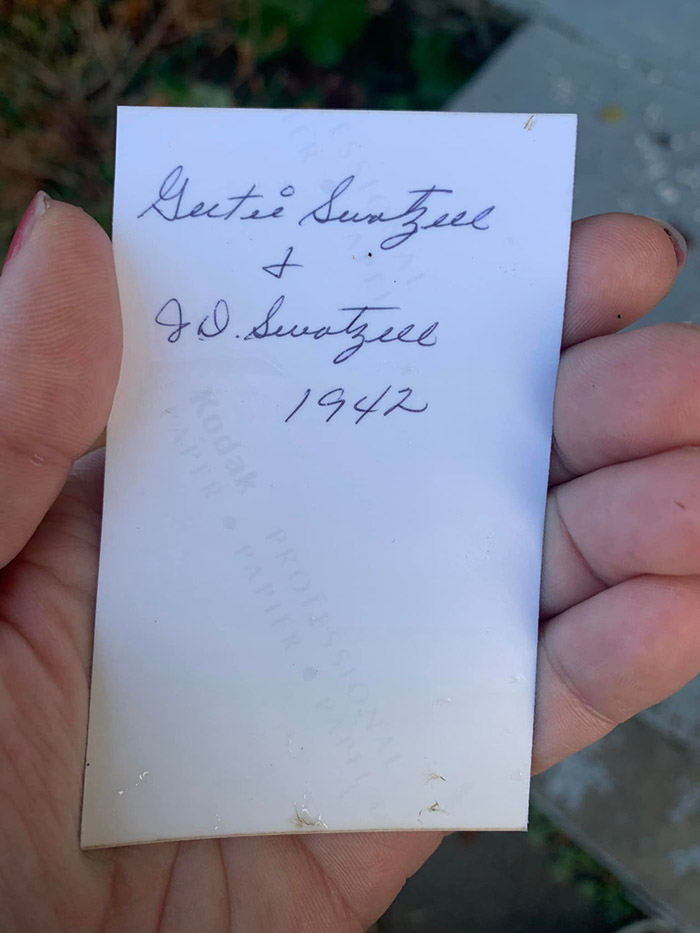 Gertie Swatzell
&
J D. Swatzell
1942
Kodak PROFESSIONAL
PAPER • PAPIER • PAPEL